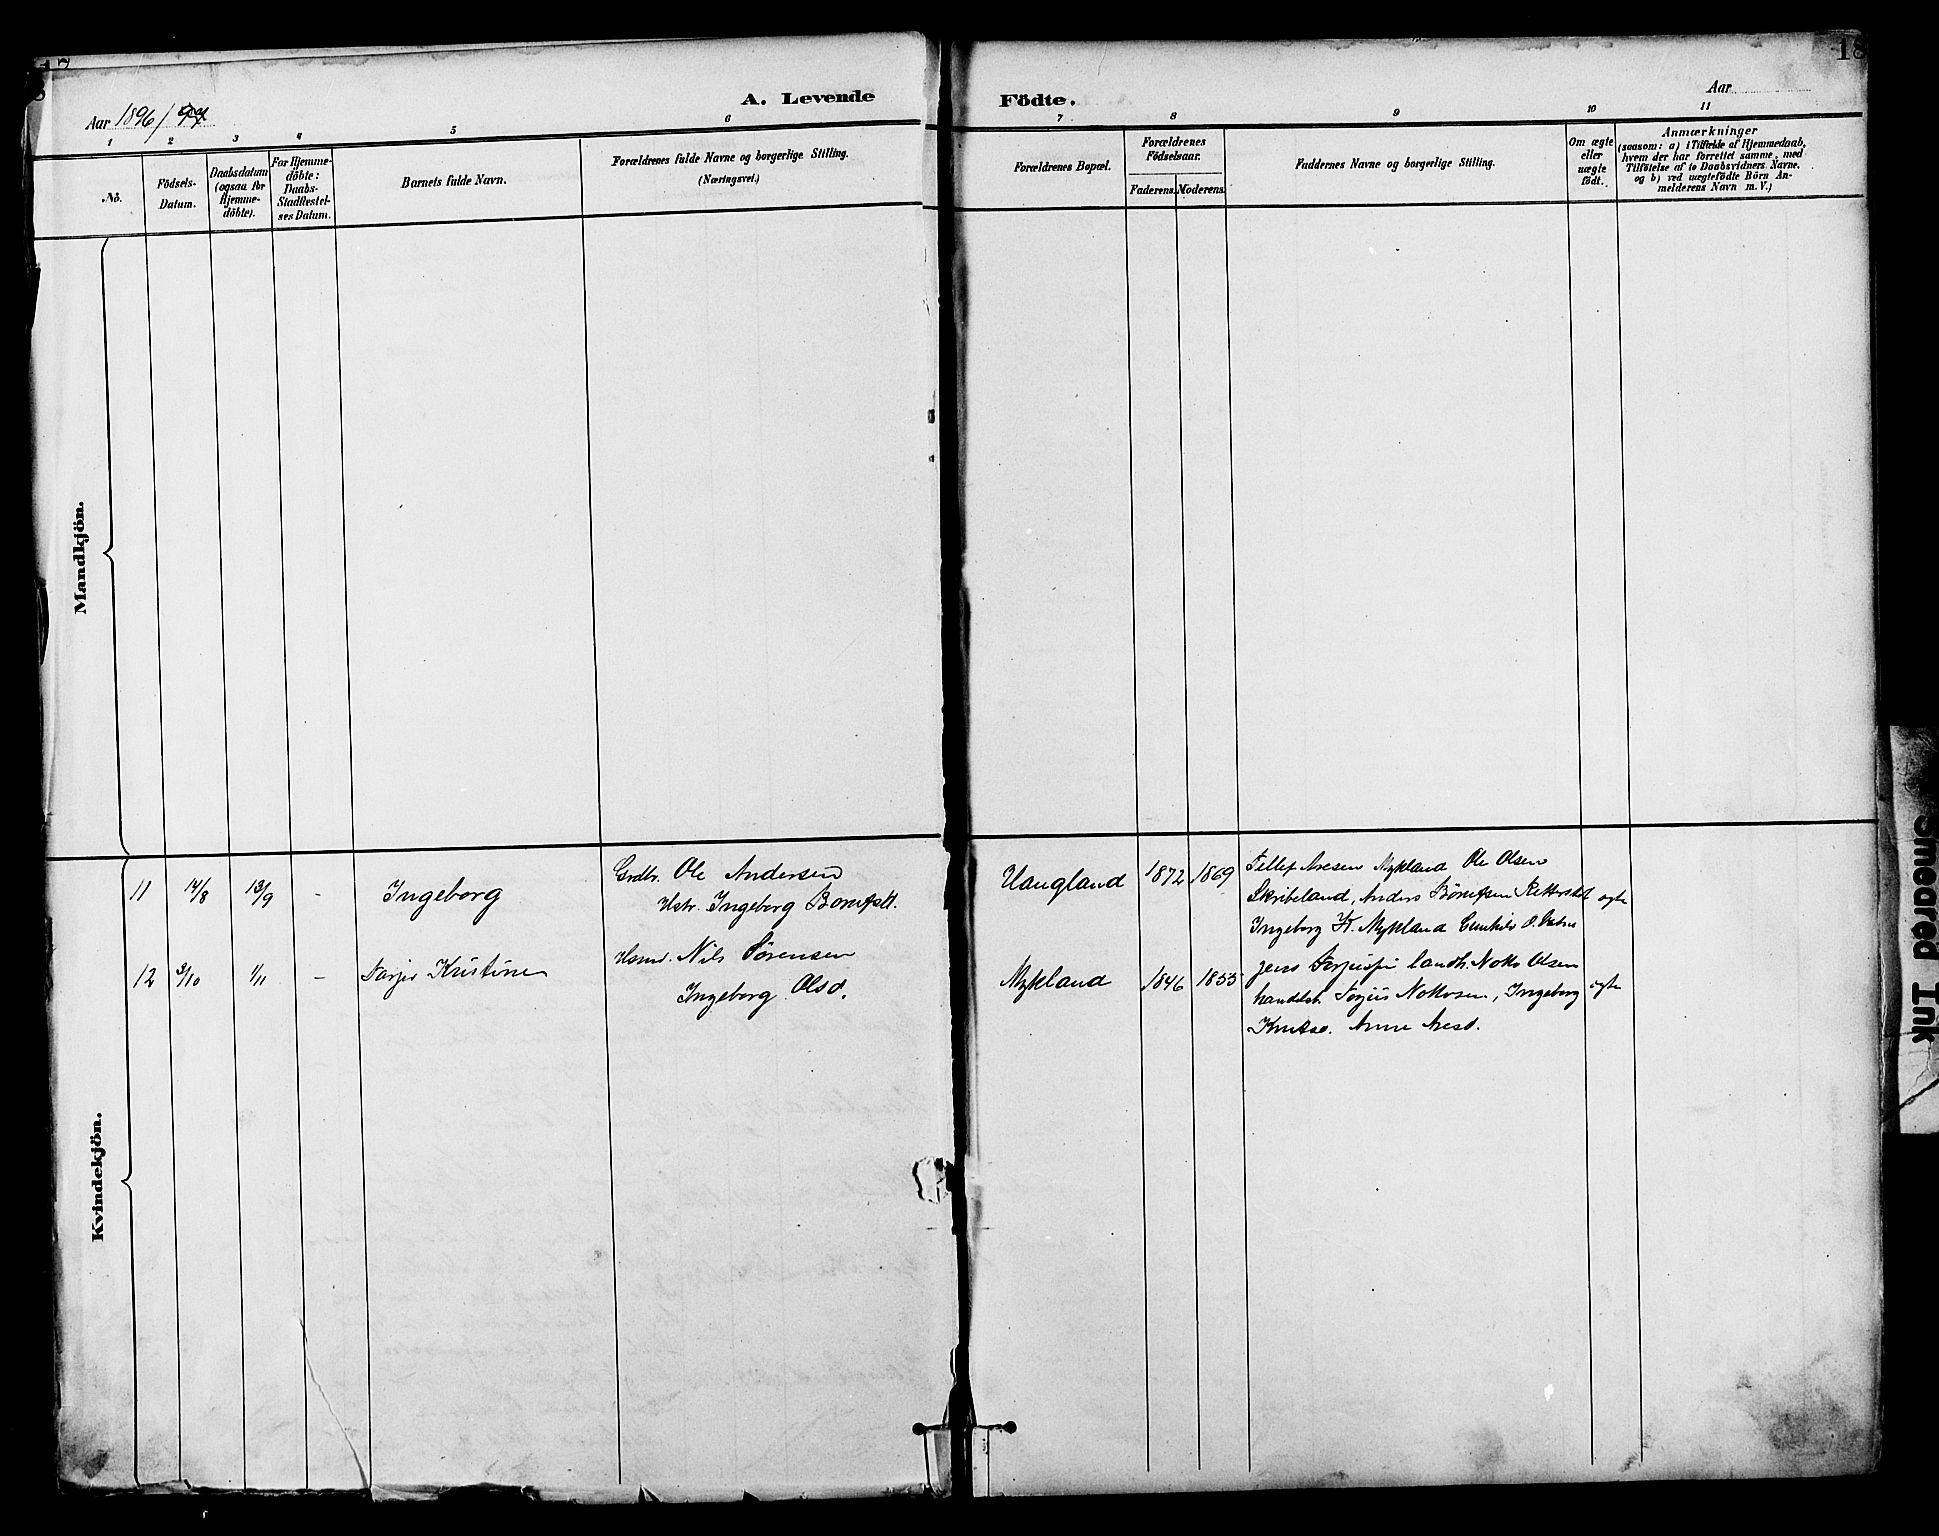 18
Aar 1896/97
A. Levende Födte.
Aar
1 2 3 4 5 6 7 8 9 10 11
No.
Födsels-
Datum.
Daabsdatum
(ogsaa for
Hjemme-
döbte).
For Hjemme-
döbte:
Daabs-
Stadfæstel-
ses Datum.
Barnets fulde Navn.
Forældrenes fulde Navne og borgerlige Stilling.
(Næringsvei.)
Forældrenes Bopæl.
Forældrenes
Födselsaar.
Faderens. Moderens.
Faddernes Navne og borgerlige Stilling.
Om ægte
eller
uægte
födt.
Anmærkninger
(saasom: a) i Tilfælde af Hjemmedaab,
hvem der har forrettet samme, med
Tilföielse af to Daabsvidners Navne.
og b) ved uægtefödte Börn An-
melderens Navn m.V.)
Mandkjön.
Kvindekjön.
11 14/8 13/9 - Ingeborg
Grdbr. Ole Andersen
Hstr. Ingeborg
Haugland 1872 1869
Tellef Aresen Mykland Ole Olsen
Skribeland, Anders
Ingeborg K. Mykland
ægte
12 3/10 1/11 - Tarjer Kristine
Hsmd. Nils Sørensen
Ingeborg Olsd.
Mykland 1846 1855
Jens landh. Olsen
handelsb. Torjus, Ingeborg
Knutsd. Anne Aresd.
ægte
Smeared Ink